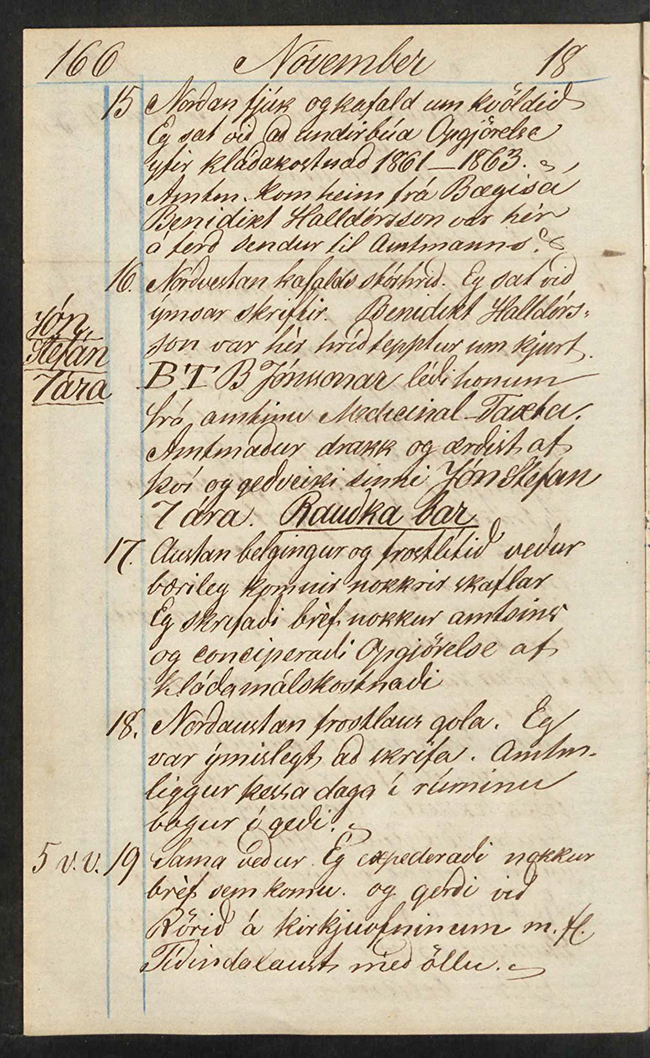 166 Nóvember 18
15 Norðan fjúk og kafald um kvöldið
Eg sat við að undirbúa Opgjörelse
yfir kláðakostnað 1861–1863.
Amtm. kom heim frá Bægisá
Benidikt Halldórsson var hér
á ferð sendur til Amtmanns.
16. Norðvestan kafalds stórhríð. Eg sat við
ýmsar skriftir. Benidikt Halldórs-
son var hér hríðtepptur um kjurt.
Jón
Stefán
7 ára
B T B Jónssonar léði honum
frá amtinu Medicinal-Taxta.
Amtmaður drakk og ærðist af
því og geðveiki sinni Jón Stefan
7 ára. Rauðka bar
17. Austan belgingur og frostlítið veður
bærileg komnir nokkrir skaflar
Eg skrifaði bréf nokkur amtsins
og conciperaði Opgjörelse af
kláðamálskostnaði
18. Norðaustan frostlaus gola. Eg
var ýmislegt að skrifa. Amtm-
liggur þessa daga í rúminu
bágur í geði.
5 v. v. 19 Sama veður Eg expederaði nokkur
bréf sem komu. og gerði við
Rörið á kirkjuofninum m. fl.
Tíðindalaust með öllu.